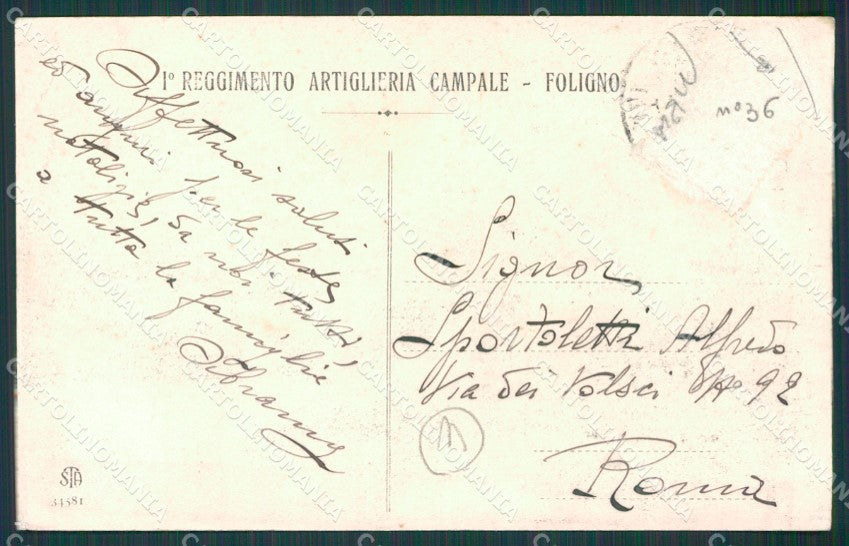 1º REGGIMENTO ARTIGLIERIA CAMPALE - FOLIGNO
nº 36
Affettuosi saluti
ed auguri per le feste
natalizie, da noi tutti,
a tutta la famiglia
Signor
Sportoletti Alfredo
Via dei Volsci Nº 92
Roma
1
STA
34581
CARTOLINOMANIA